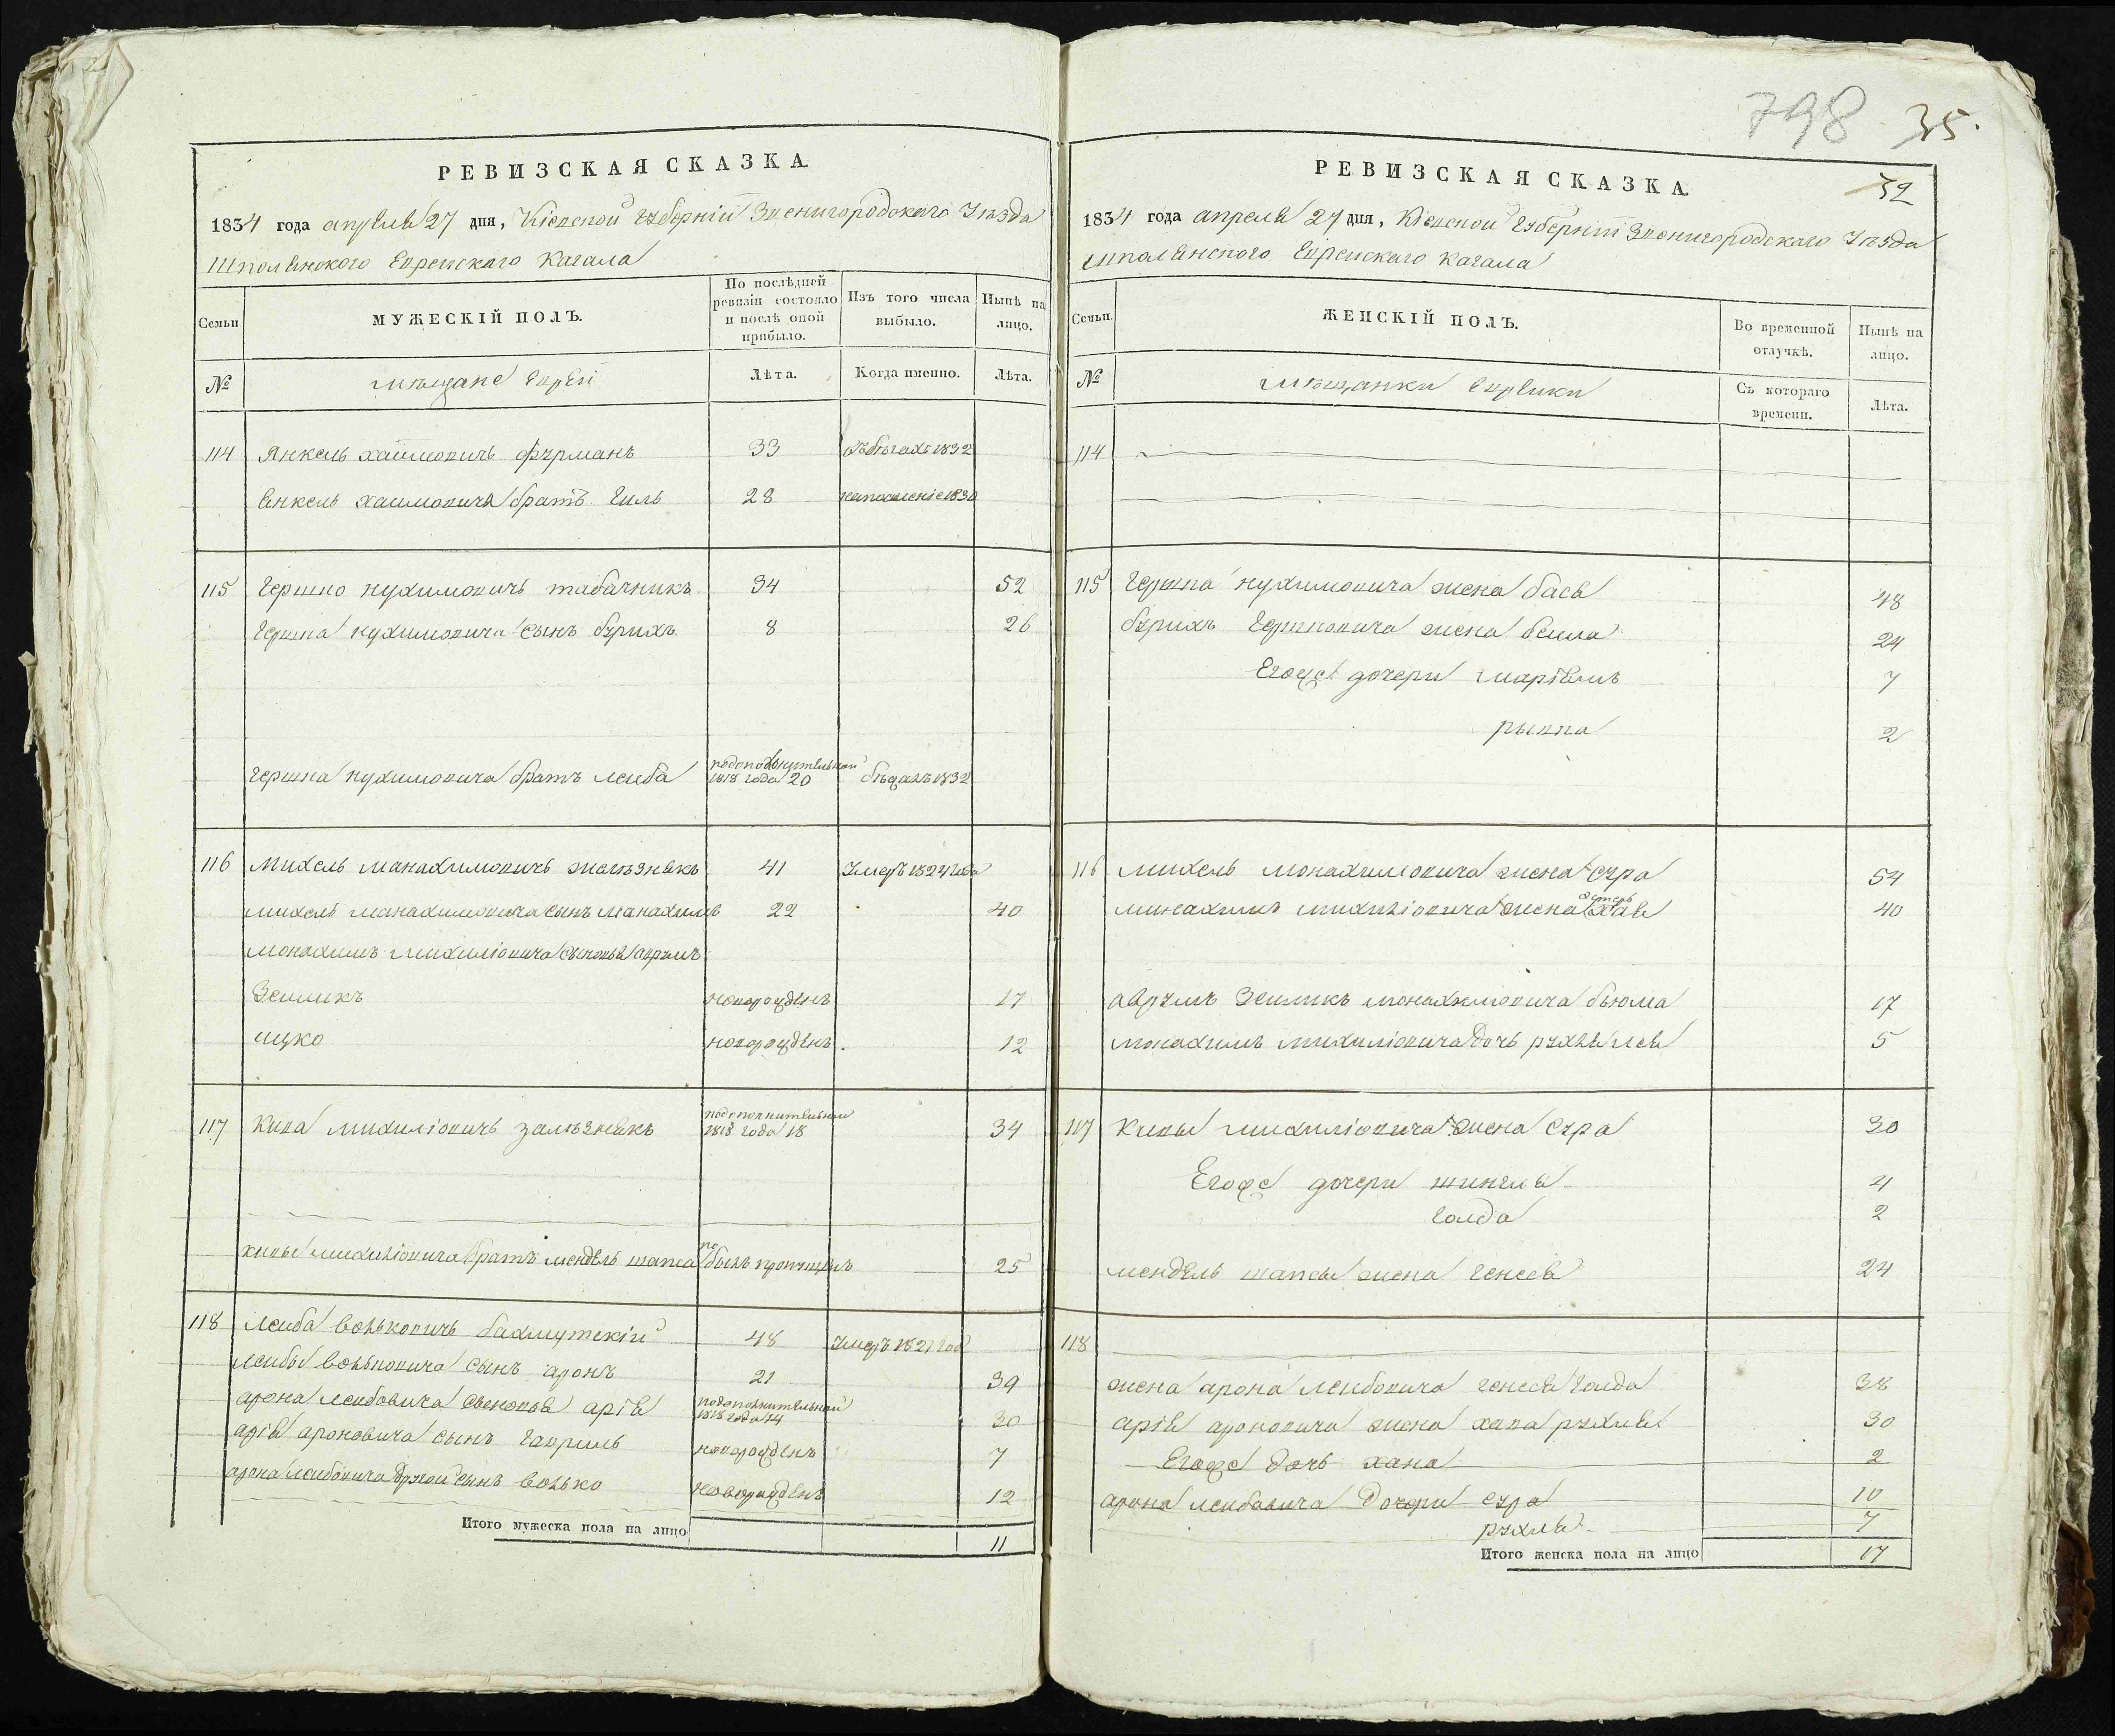 798 35.
РЕВИЗСКАЯ СКАЗКА.
1834 года апреля 27 дня, Кіевской губерніи Звенигородскаго Уѣзда
Шполянского Еврейскаго Кагала
Семьи
МУЖЕСКІЙ ПОЛЪ.
По послѣдней ревизіи состояло и послѣ оной прибыло.
Изъ того числа выбыло.
Нынѣ на лицо.
№
мѣщане Евреи
Лѣта.
Когда именно.
Лѣта.
114 Янкель хаймовичь фурманъ 33 въ бѣгахъ 1832
Янкеля хаимовича братъ Гиль 28 1830
115 Гершко нухимовичь табачникъ 34 52
Гершка нухимовича сынъ бурихъ 8 26
Гершка нухимовича братъ лейба подополнительной 1818 года 20 1832
116 Михель манахимовичь железнякъ 41 Умеръ 1824 года
михель манахимовича сынъ манахимъ 22 40
монахимъ михиліовича сыновья аврумъ
Зейликъ новорожденъ 17
ицко новорожденъ. 12
117 Кива михиліовичь зализнякъ подополнительной 1818 года 18 34
кивы михиліовича братъ мендель шапса былъ пропущенъ 25
118 Лейба вольковичь бахмутскій 48 Умеръ 1821 год
лейбы вольковича сынъ аронъ 21 39
арона лейбовича сыновья арія подополнительной 1818 года 14 30
арія ароновича сынъ гавриль новорожденъ 7
арона лейбовича другой сынъ волько новорожденъ 12
Итого мужеска пола на лицо 11
РЕВИЗСКАЯ СКАЗКА.
32
1834 года апреля 27 дня, Кіевской губерніи Звенигородскаго Уѣзда
Шполянского Еврейскаго Кагала
Семьи.
ЖЕНСКІЙ ПОЛЪ.
Во временной отлучкѣ.
Нынѣ на лицо.
№
мѣщанки Еврейки
Съ котораго времени.
Лѣта.
114
115 Гершка нухимовича жена бася 48
бурихъ Гершковича жена бейла 24
Егоже дочери маріямъ 7
рывка 2
116 михель монахимовича жена сура 54
манахимъ михиліовича жена естеръ хая 40
аврумъ Зейликъ монахимовича бьюма 17
монахимъ михиліовича дочь рухля лея 5
117 Кивы михиліовича жена Сура 30
Егоже дочери шинтля 4
голда 2
мендель шапсы жена генися 24
118
жена арона лейбовича генися голда 38
арія ароновича жена хава рухля 30
Егоже дочь хана 2
арона лейбовича дочери сура 10
рухля 7
Итого женска пола на лицо 17